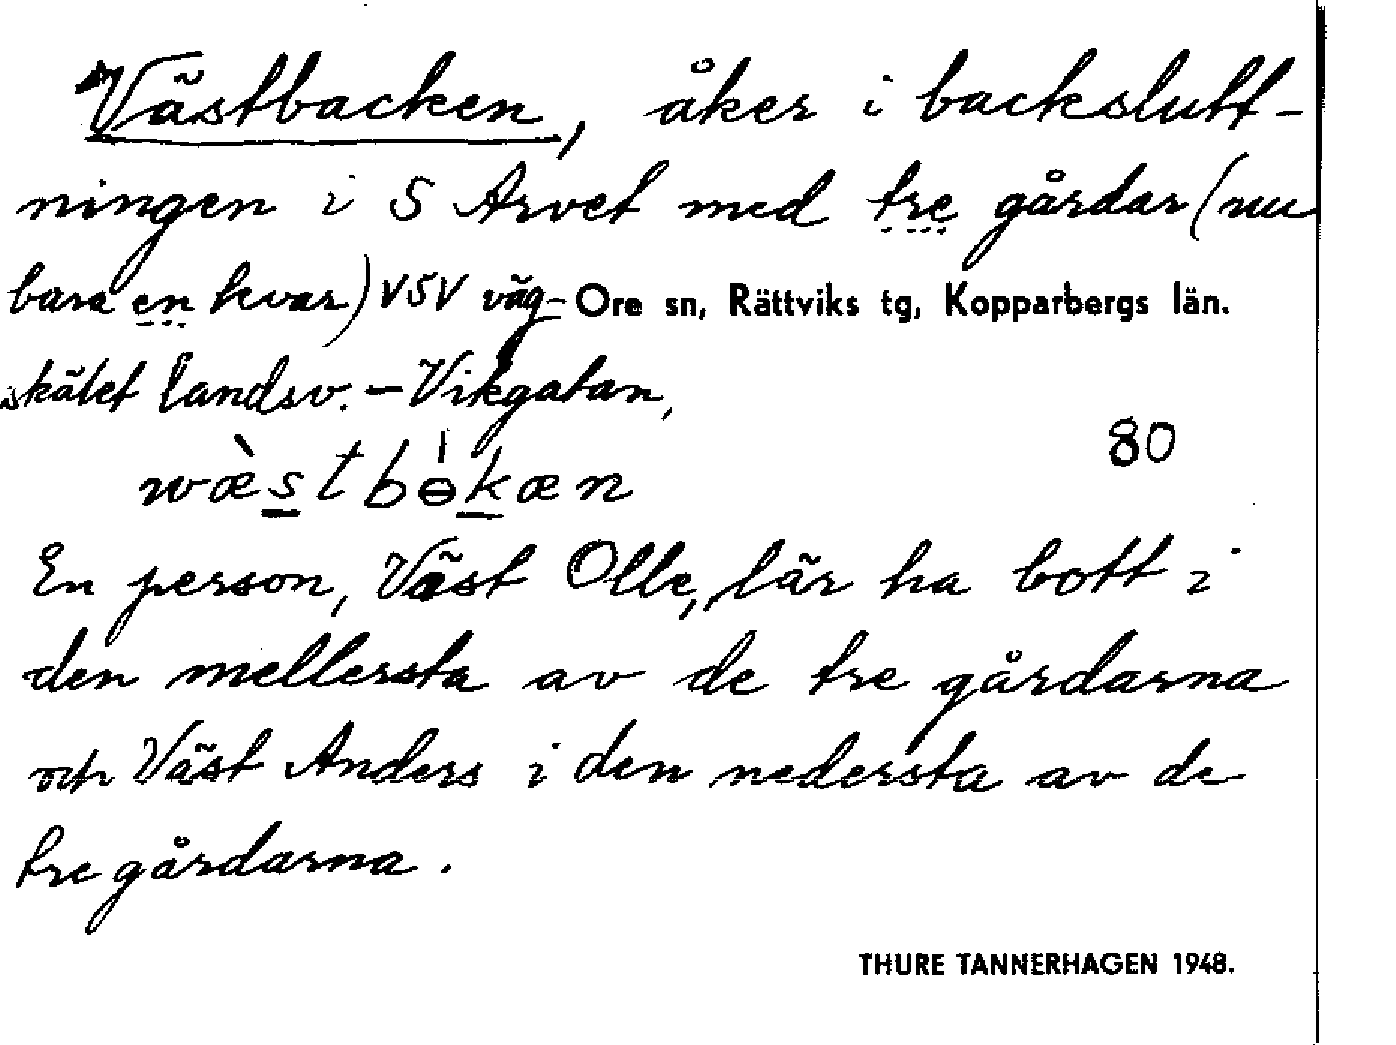 Västbacken, åker i backslutt-
ningen i S Arvet med tre gårdar (nu
bara en kvar) VSV väg- Ore sn, Rättviks tg, Kopparbergs län.
skälet landsv. – Vikgatan,
80
wæ̀stbɵ̍kæn
En person, Väst Olle, lär ha bott i
den mellersta av de tre gårdarna
och Väst Anders i den nedersta av de
tre gårdarna.
THURE TANNERHAGEN 1948.